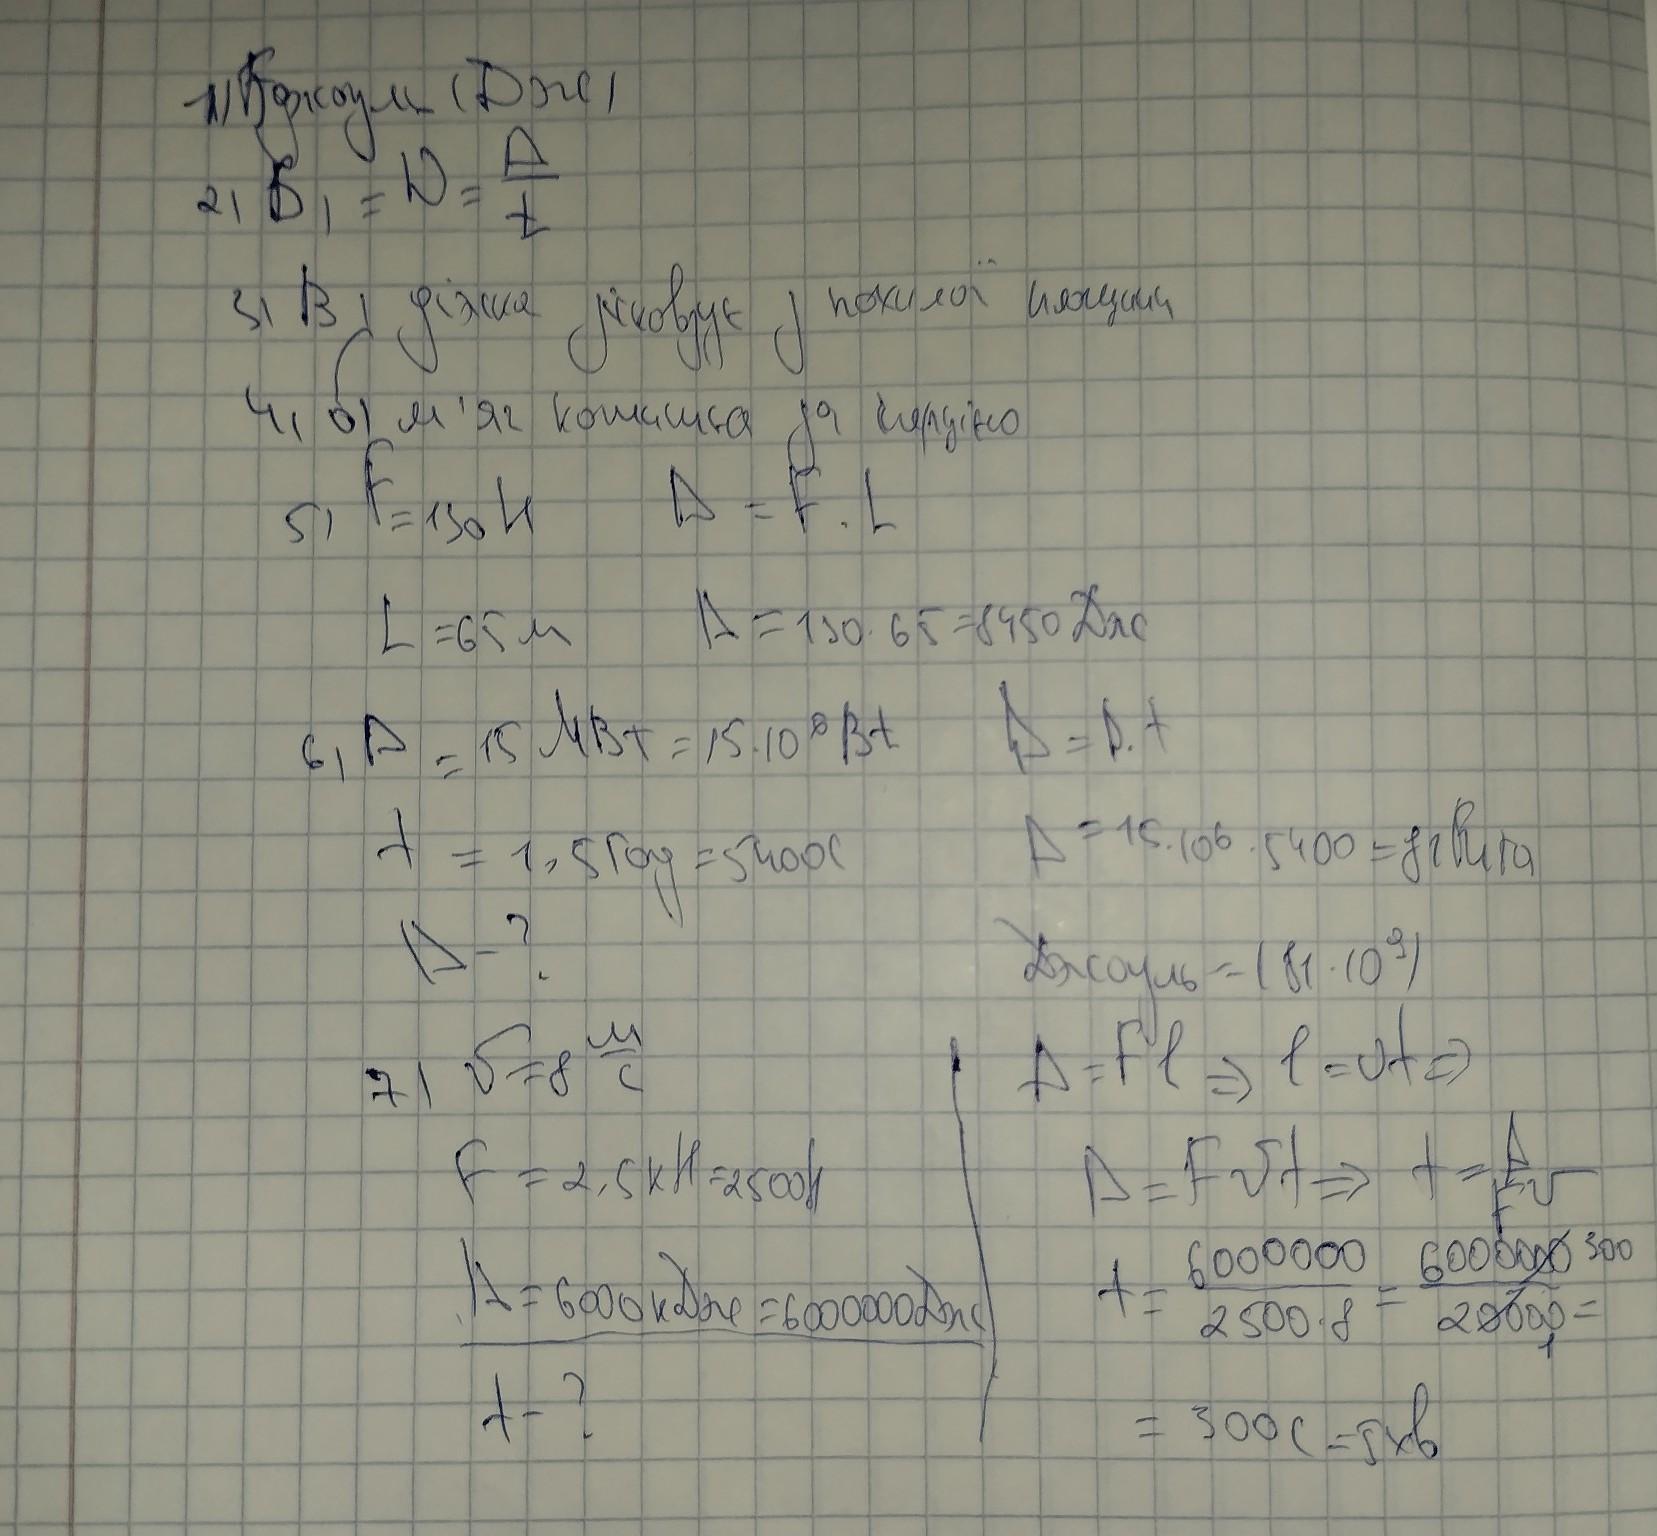 1) В джоуль (Дж)
2) Б) = N = A/t
3) В) діжка у похилої площини
4) б) м'яг за
5) F = 130 Н A = F · L
L = 65 м A = 130 · 65 = 8450 Дж
6) A = 15 МВт = 15 · 10⁶ Вт A = P · t
t = 1,5 год = 5400 с A = 15 · 10⁶ · 5400 = 81
A - ? Джоуль = (81 · 10⁹)
7) v = 8 м/с A = Fl ⇒ l = vt ⇒
F = 2,5 кН = 2500 Н A = Fvt ⇒ t = A/Fv
A = 6000 кДж = 6000000 Дж t = 6000000/2500·8 = 6000000 300/20000 1 =
t - ? = 300 с = 5 хв